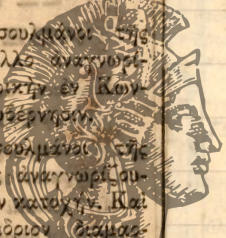 σουλμάνοι τῆς
λλο ἀναγνωρί-
ρικὴν ἐν Κων-
υβέρνησιν.
σουλμάνοι τῆς
ἀναγνωρίζου-
ν κατοχήν. Καὶ
διαμαρ-